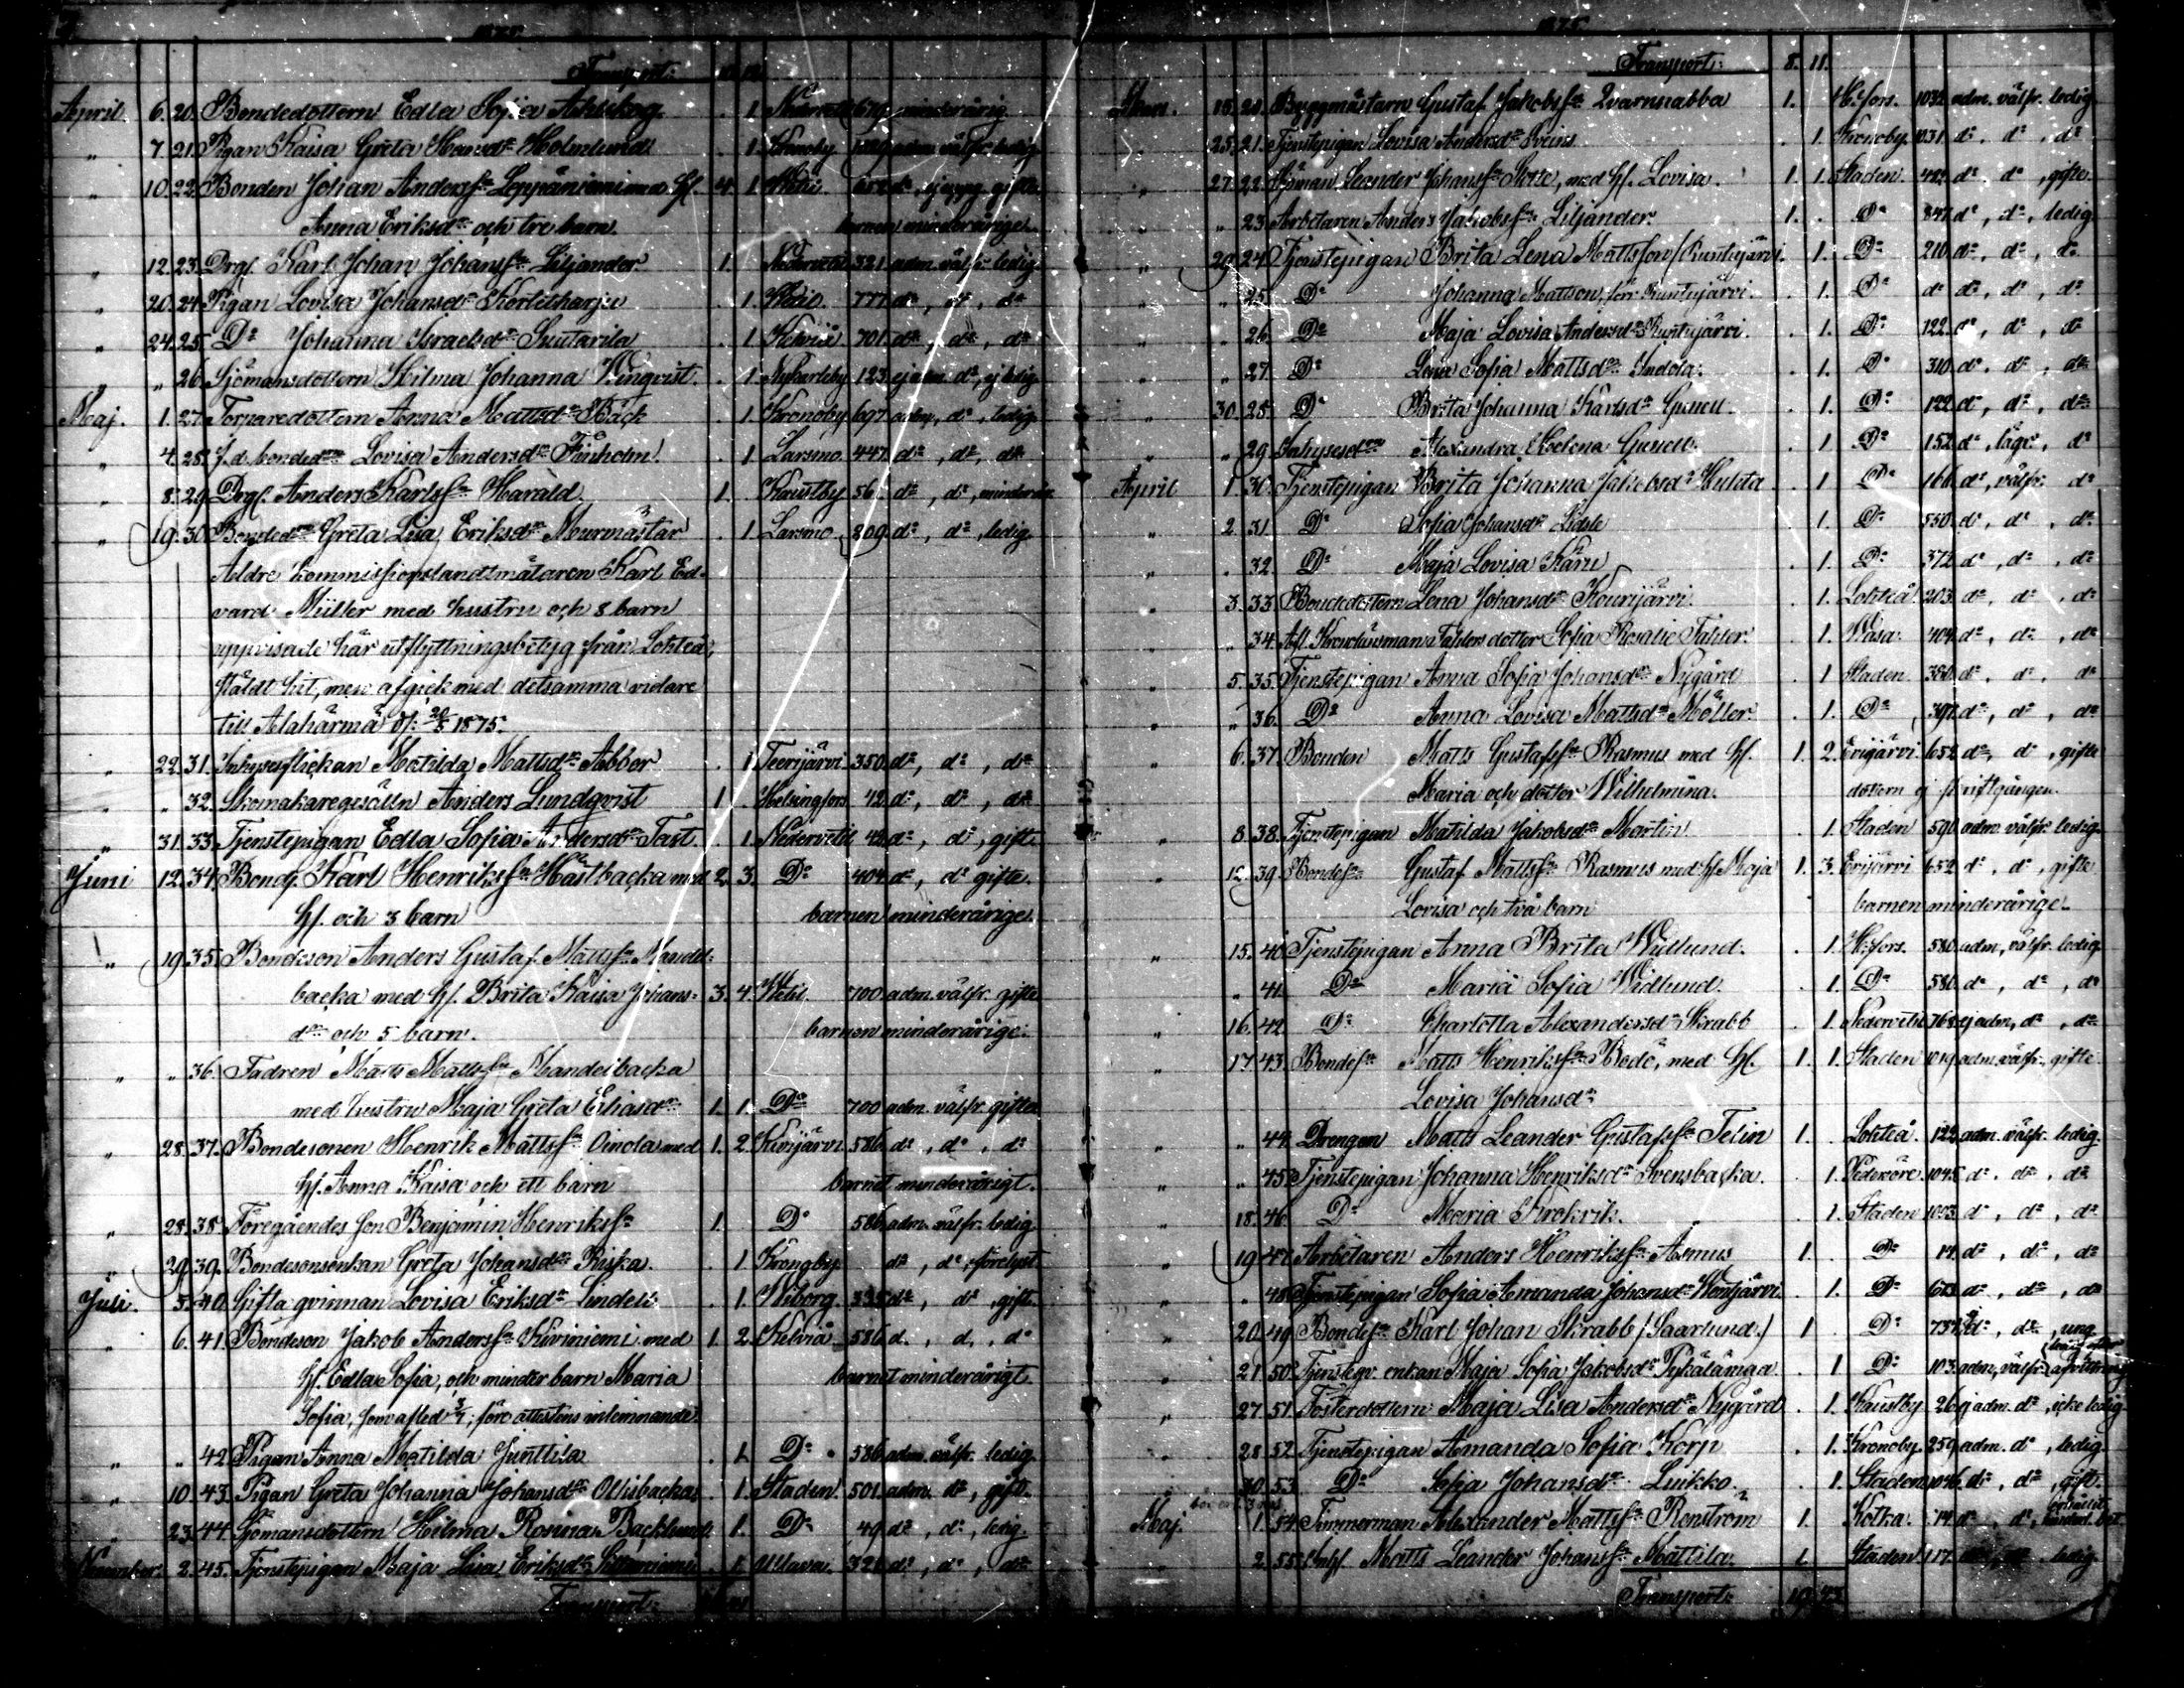 1875.
Transport:
April. 6. 20. Bondedottern Edla Sofia Ahlskog . 1 Nedervetil 679 minderårig.
" 7. 21. Pigan Kaisa Greta Hansdr Holmlund . 1. Kronoby adm. välfr. ledig
" 10. 22. Bonden Johan Andersson Leppäniemi med h. 4. 1. Vetil 652 dr, gifte.
Anna Eriksdr och tre barn. barnen minderårige.
" 12. 23. Drgn. Karl Johan Johansson Liljander. 1. Nedervetil 321. adm. välfr. ledig
" 20. 24. Pigan Lovisa Johansdr . 1. 777. do, do, do
" 24. 25. Do Johanna Israelsdr . 1 Kelviå 701. do, do, do
" " 26. Sjömansdottern Hilma Johanna Winqvist. . 1. Nykarleby 123. ej adm. do, ej ledig
Maj. 1. 27. Torparedottern Anna Mattsdr Bäck . 1. Kronoby 697 adm, do, ledig.
" 4. 28. f.d. bondedrn Lovisa Andersdr Finholm. . 1 Larsmo. 447. do, do, do
" 8. 29. Drgn. Anders Karlsson Harald. 1. . Kaustby 56. do, do, minderår.
" 19. 30. Bondedrn Greta Lisa Eriksdr Murmästar . 1 Larsmo 209. do, do, ledig.
Äldre Kommissionslandtmätaren Karl Ed-
vard Müller med hustru och 8 barn
uppvisade här utflyttningsbetyg från Lohteå,
stäldt hit, men afgick med detsamma vidare
till Alahärmä d. 20/5 1875.
" 22. 31. Inhysesflickan Matilda Mattsdr Abbor . 1 Teerijärvi 350. do, do, do
" " 32. Skomakaregesälln Anders Lundqvist 1 . Helsingfors 42. do, do, do
" 31. 33. Tjenstepigan Edla Sofia Andersdr Tast. . 1. Nedervetil 42. do, do, gift.
Juni 12. 34. Bond. Karl Henriksson Hästbacka med 2. 3. Do 404. do, do gifte.
h. och 3 barn barnen minderårige.
" 19. 35. Bondeson Anders Gustaf Mattsson Mandel-
backa med h. Brita Kaisa Johans- 3. 4. Vetil. 700. adm. välfr. gifte
dr och 5 barn. barnen minderårige.
" " 36. Fadren Matts Mattsson Mandelbacka
med hustru Maja Greta Eliasdr 1. 1. Do 700 adm. välfr. gifte
" 28. 37. Bondesonen Henrik Mattsson Oinola med 1. 2. Kivijärvi. 586. do, do, do
h. Anna Kaisa och ett barn barnet minderårigt.
" 28. 38. Föregåendes son Benjamin Henriksson 1. Do 586. adm. välfr. ledig.
" 29. 39. Bondesonsenkan Greta Johansdr Riska. . 1. Kronoby do, do, förelyst.
Juli. 5. 40. Gifta qvinnan Lovisa Eriksdr Lindell. . 1. Wiborg. 335. do, do, gift.
" 6. 41. Bondeson Jakob Andersson Kiviniemi med 1. 2. Kelviå 586. d., d., do
h. Edla Sofia, och minder barn Maria barnet minderårigt
Sofia, som afled 3/7, före attestens inlemnande
" " 42. Pigan Anna Matilda Junttila . 1. Do 586 adm. välfr. ledig.
" 10. 43. Pigan Greta Johanna Johansdr Ollisbacka . 1. Staden. 501. adm. do, gift.
" 23. 44. Sjömansdottern Hilma Rosina Backlund. . 1. Do 49. do, do, ledig.
November. 2. 45. Tjenstepigan Maja Lisa Eriksdr . 1. Ullava. 321. do, do, do
Transport:
1875.
Transport: 8. 11.
15. 20. Byggmästarn Gustaf Jakobsson Qvarnnabba 1. H:fors. 1032. adm. välfr. ledig
" 25. 21. Tjenstepigan Lovisa Andersdr Sveins . 1. Kronoby. 1031. do, do, do
" 27. 22. Leander Johansson Slotte, med h. Lovisa. 1. 1. Staden. 422. do, do, gifte.
" " 23. Arbetaren Anders Jakobsson Liljander. 1. . Do 847. do, do, ledig.
" 29. 24. Tjenstepigan Brita Lena Mattsson . 1. Do 210. do, do, do
" " 25. Do Johanna Mattson, . 1. Do do do, do, do
" " 26. Do Maja Lovisa Andersdr . 1. Do 122. do, do, do
" " 27. Do Lena Sofia Mattsdr Indola. . 1. Do 310. do, do, do
" 30. 28. Do Brita Johanna Karlsdr . 1. Do 122. do, do, do
" " 29. Inhysesdrn Alexandra Helena . 1 Do 152. do, do
April 1. 30. Tjenstepigan Brita Johanna Jakobsdr Huhta . 1 Do 166. do, välfr. do
" 2. 31 Do Sofia Johansdr . 1. Do 550. do, do, do
" " 32. Do Maja Lovisa . 1. Do 372. do, do, do
" 3. 33. Bondedottern Lena Johansdr Kourijärvi. . 1. Lohteå. 203. do, do, do
" " 34. Afl. Kronolänsman Fahlers dotter Sofia Rosalie Fahler. . 1. Wasa. 404. do, do, do
" 5. 35. Tjenstepigan Anna Sofia Johansdr Nygård . 1 Staden. 380. do, do, do
" " 36. Do Anna Lovisa Mattsdr Möller. . 1. Do 391. do, do, do
" 6. 37. Bonden Matts Gustafsson Rasmus med h. 1. 2. Evijärvi. 652. do, do, gifte
Maria och dotter Wilhelmina. dottern ej skriftgången.
" 8. 38. Tjenstepigan Matilda Jakobsdr Martin . 1. Staden 590. adm. välfr. ledig.
" 12. 39. Bondeson Gustaf Mattsson Rasmus med h. Maja 1. 3. Evijärvi 652. do, do, gifte
Lovisa och två barn barnen minderårige.
" 15. 40. Tjenstepigan Anna Brita Widlund. . 1. H:fors. 580. adm, välfr. ledig
" " 41. Do Maria Sofia Widlund. . 1. Do 580. do, do, do
" 16. 42. Do Charlotta Alexandersdr Skrabb . 1. Nedervetil 768. ej adm, do, do
" 17. 43. Bondeson Matts Henriksson Bodö, med h. 1. 1. Staden 1019. adm. välfr. gifte
Lovisa Johansdr
" " 44. Drengen Matts Leander Gustafsson Felin 1. . Lohteå. 122. adm. välfr. ledig.
" " 45. Tjenstepigan Johanna Henriksdr Svensbacka. . 1. Pedersöre. 1045. do, do, do
" 18. 46. Do Maria Krokvik. . 1. Staden 1053. do, do, do
" 19. 47. Arbetaren Anders Henriksson Asmus 1. Do 14. do, do, do
" " 48. Tjenstepigan Sofia Amanda Johansdr . 1. Do 613. do, do, do
" 20. 49. Bondeson Karl Johan Skrabb (Saarlund.) 1 Do 757. do, do, ung
" 21. 50. Tjensteqv. enkan Maja Sofia Jakobsdr . 1 Do 103. adm, välfr.
" 27. 51. Fosterdottern Maja Lisa Andersdr Nygård . 1. Kaustby. 26. ej adm. do, icke ledig
" 28. 52. Tjenstepigan Amanda Sofia Korp . 1. Kronoby. 259. adm. do, ledig.
" 30. 53. Do Sofia Johansdr Luikko. . 1. Staden 1046. do, do, gift.
Maj. 1. 54. Timmerman Alexander Mattsson Renström 1. Kotka. 14. do, do,
2. 55. Matts Leander Johansson Mattila. 1. Staden 117. do, do, ledig.
Transport: 19